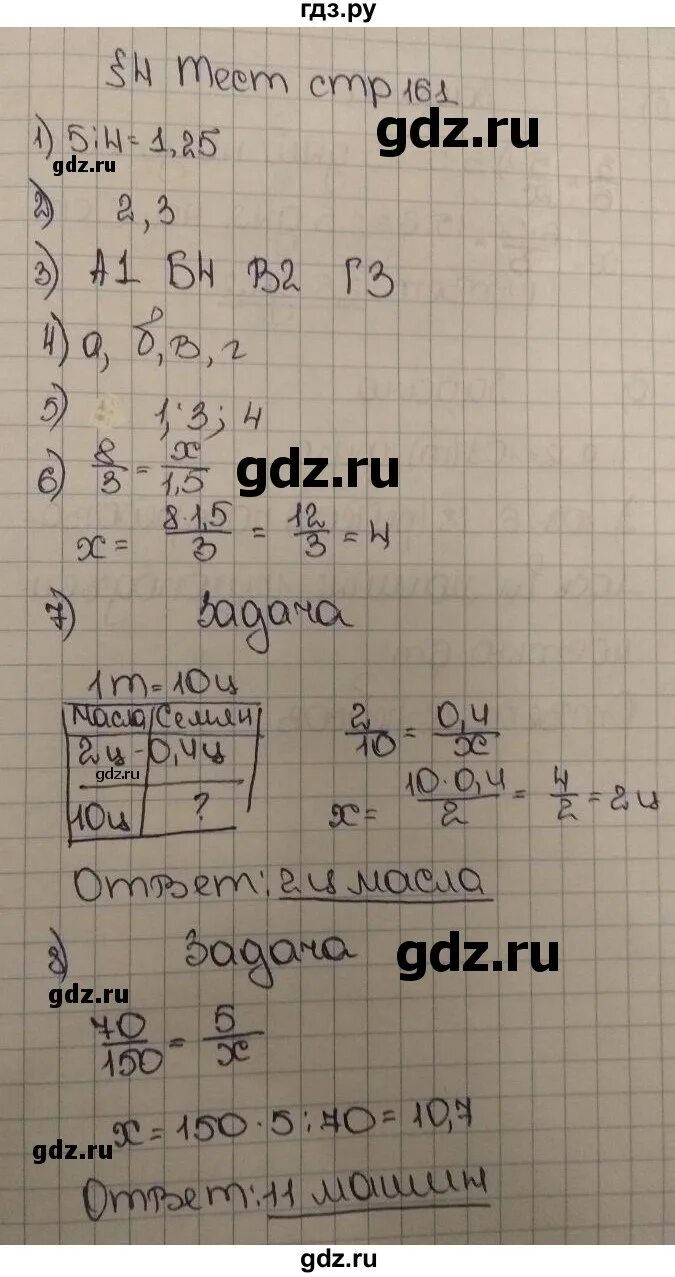 гдз.ру
§4 Тест стр 161
gdz.ru
1) 5:4=1,25
gdz.ru
2) 2,3
3) А1 Б4 В2 Г3
4) а, б, в, г
5) 1; 3; 4
6) 8/3 = x/1,5
gdz.ru
x = 8·1,5/3 = 12/3 = 4
7) Задача
1т=10ц
Масла Семян
2ц - 0,4ц
gdz.ru
10ц ?
2/10 = 0,4/x
x = 10·0,4/2 = 4/2 = 2ц
Ответ: 2ц масла
8) Задача
gdz.ru
gdz.ru
70/150 = 5/x
x = 150·5:70=10,7
gdz.ru
Ответ: 11 машин
gdz.ru